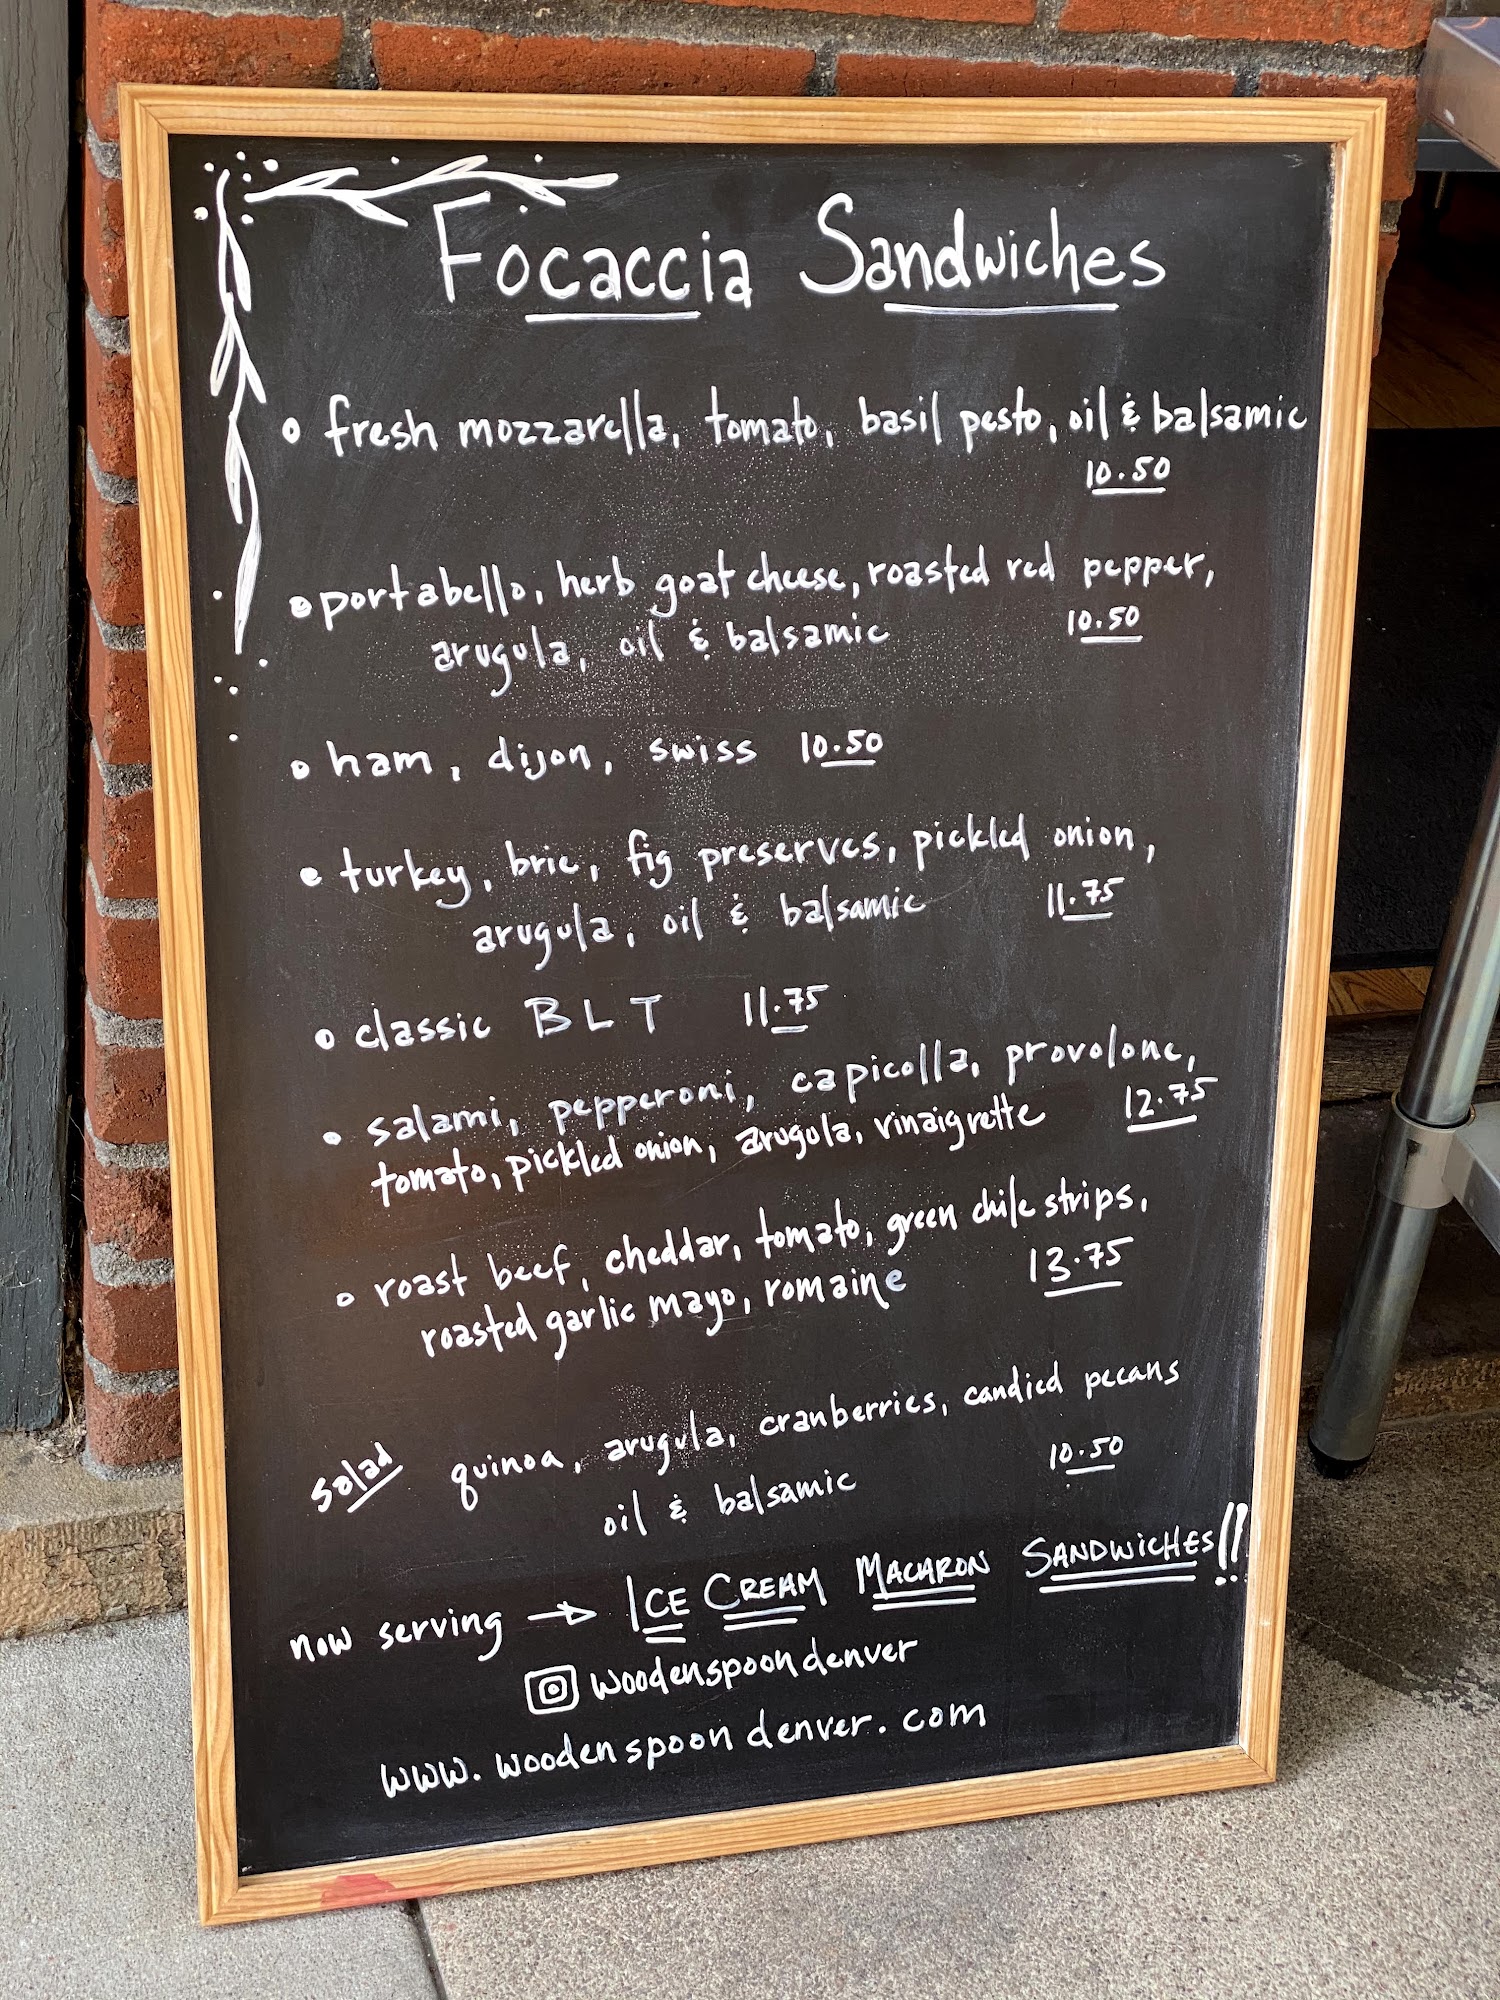 Focaccia Sandwiches
• fresh mozzarella, tomato, basil pesto, oil & balsamic
10.50
• portabello, herb goat cheese, roasted red pepper,
arugula, oil & balsamic 10.50
• ham, dijon, swiss 10.50
• turkey, brie, fig preserves, pickled onion,
arugula, oil & balsamic 11.75
• classic BLT 11.75
• salami, pepperoni, capicolla, provolone,
tomato, pickled onion, arugula, vinaigrette 12.75
• roast beef, cheddar, tomato, green chile strips,
roasted garlic mayo, romaine 13.75
salad quinoa, arugula, cranberries, candied pecans
oil & balsamic 10.50
now serving → ICE CREAM MACARON SANDWICHES!!
woodenspoondenver
www.woodenspoondenver.com